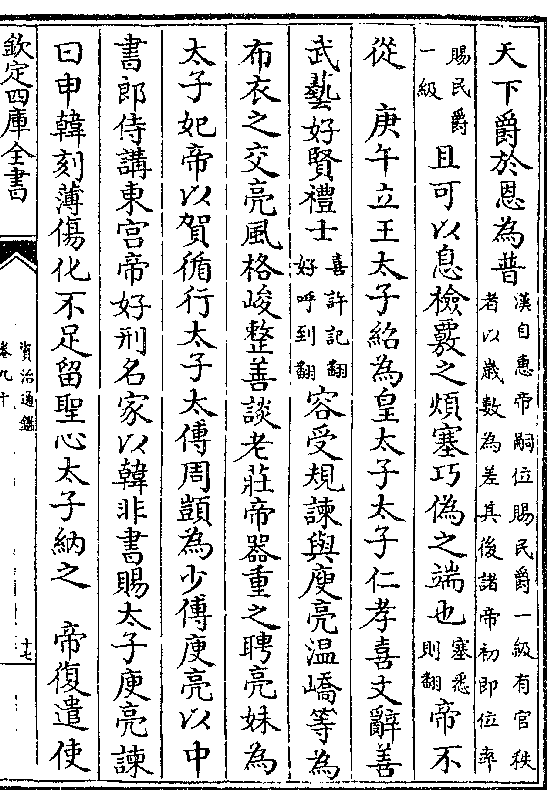 天下爵於恩為普漢自惠帝嗣位賜民爵一級有官秩者以嵗數為差其後諸帝初即位率
賜民爵一級且可以息檢覈之煩塞巧偽之端也塞悉則翻帝不
從　庚午立王太子紹為皇太子太子仁孝喜文辭善
武藝好賢禮士喜許記翻好呼到翻容受規諫與庾亮温嶠等為
布衣之交亮風格峻整善談老莊帝器重之聘亮妹為
太子妃帝以賀循行太子太傅周顗為少傅庾亮以中
書郎侍講東宫帝好刑名家以韓非書賜太子庾亮諫
曰申韓刻薄傷化不足留聖心太子納之　帝復遣使
欽定四庫全書
資治通鑑
卷九十
十七